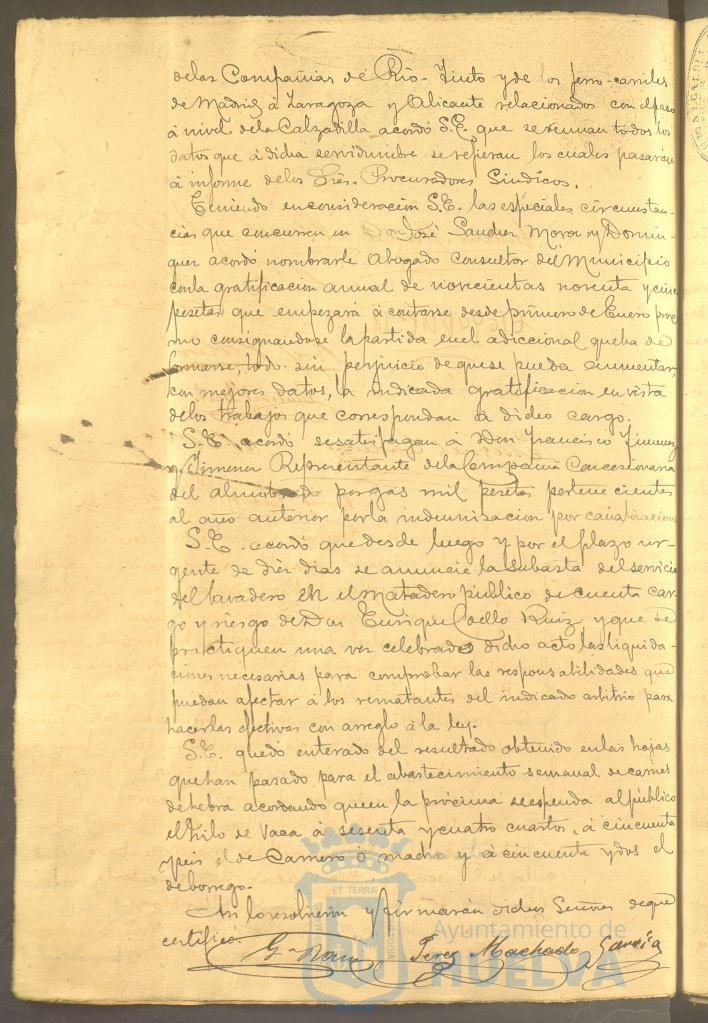 de las Compañias de Rio-Tinto y de los ferro-carriles
de Madrid á Zaragoza y Alicante relacionados con el paso
á nivel de la Calzadilla acordó S.E. que se reunan todos los
datos que á dicha servidumbre se refieran los cuales pasarán
á informe de los Sres. Procuradores Sindicos.
Teniendo en consideración S.E. las especiales circunstan-
cias que concurren en Don José Sanchez Mora y Domin-
guez acordó nombrarle Abogado Consultor del Municipio
con la gratificacion annual de novecientas noventa y cinco
pesetas que empezará á contarse desde primero de Enero proxi
mo consignandose la partida en el adiccional que ha de
formarse, todo sin perjuicio de que se pueda aumentar,
con mejores datos, la indicada gratificacion en vista
de los trabajos que correspondan á dicho cargo.
S.E. acordó se satisfagan á Don Francisco Jimenez
y Jimenez Representante de la Compañia Concesionaria
del alumbrado por gas mil pesetas pertenecientes
al año anterior por la indemnisacion por
S.E. acordó que desde luego y por el plazo ur-
gente de diez dias se anuncie la subasta del servicio
del lavadero en el Matadero público de cuenta car-
go y riesgo de Don Enrique Coello Ruiz, y que se
practiquen una vez celebrado dicho acto las liquida-
ciones necesarias para comprobar las responsabilidades que
puedan afectar á los rematantes del indicado arbitrio para
hacerlas efectivas con arreglo á la ley.
S.E. quedó enterado del resultado obtenido en las hojas
que han pasado para el abastecimiento semanal de carnes
de hebra acordando que en la prócima se espenda al público
el kilo de Vaca á sesenta y cuatro cuartos, á cincuenta
y seis el de Carnero ó macho y á cincuenta y dos el
de borrego.
Asi lo resolvieron y firmarán dichos Señores de que
certifico.
Perez Machado Garcia
ET TERRAE
Ayuntamiento de
HUELVA